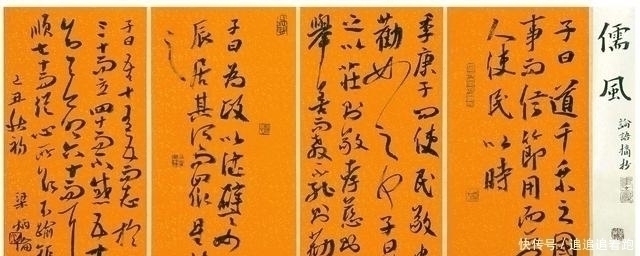 儒風
論語摘抄
子曰道千乘之國
事而信節用而
人使民以時
季康子問使民敬忠
勸如之何子曰
之以莊則敬孝慈則
舉善而教不能則勸
子曰為政以德譬如
辰居其所而眾星
之
子曰吾十有五而志於
三十而立四十而不惑五十
知天命六十而耳
順七十而從心所欲不踰矩
乙丑秋初
梁炳倫
快传号/追追追着跑